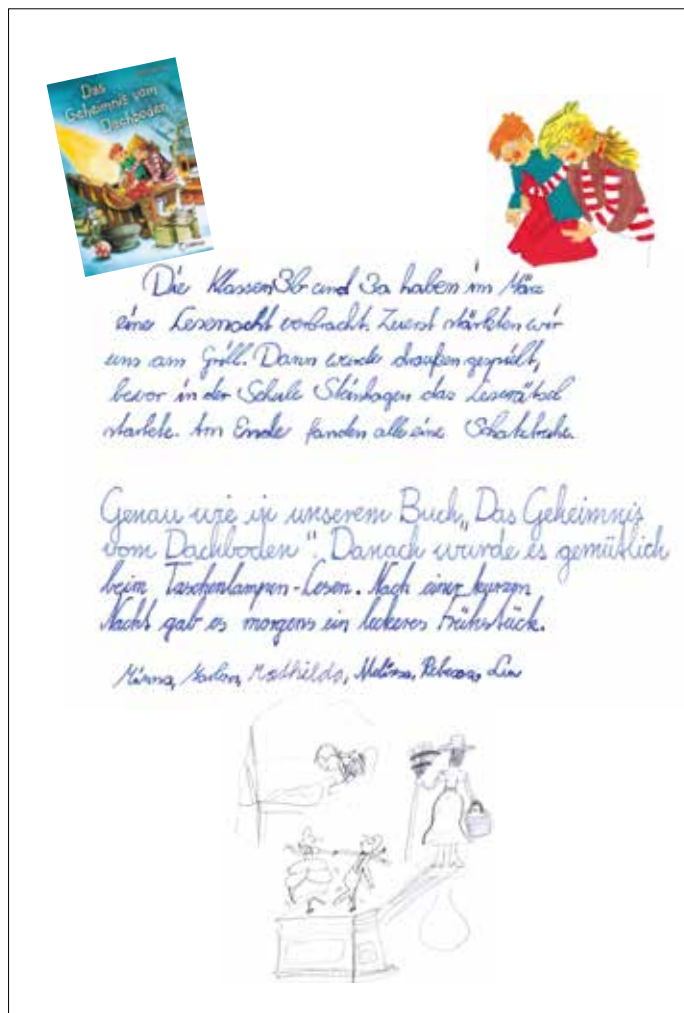 Das
Geheimnis vom
Dachboden
Die Klassen 3b und 3a haben im März
eine Lesenacht verbracht. Zuerst stärkten wir
uns am Grill. Dann wurde draußen gespielt,
bevor in der Schule Steinhagen das Leserätsel
startete. Am Ende fanden alle eine Schatztruhe.
Genau wie in unserem Buch „Das Geheimnis
vom Dachboden“. Danach wurde es gemütlich
beim Taschenlampen-Lesen. Nach einer kurzen
Nacht gab es morgens ein leckeres Frühstück.
Minna, Mathilda, Melissa, Rebecca, Lia